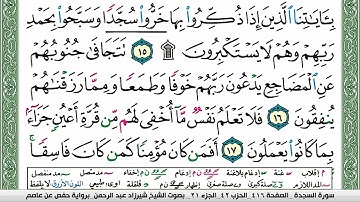 بِـَٔايَـٰتِنَا ٱلَّذِينَ إِذَا ذُكِّرُوا۟ بِهَا خَرُّوا۟ سُجَّدًا وَسَبَّحُوا۟ بِحَمْدِ
رَبِّهِمْ وَهُمْ لَا يَسْتَكْبِرُونَ ۩ ١٥ تَتَجَافَىٰ جُنُوبُهُمْ
عَنِ ٱلْمَضَاجِعِ يَدْعُونَ رَبَّهُمْ خَوْفًا وَطَمَعًا وَمِمَّا رَزَقْنَـٰهُمْ
يُنفِقُونَ ١٦ فَلَا تَعْلَمُ نَفْسٌ مَّآ أُخْفِىَ لَهُم مِّن قُرَّةِ أَعْيُنٍ جَزَآءًۢ
بِمَا كَانُوا۟ يَعْمَلُونَ ١٧ أَفَمَن كَانَ مُؤْمِنًا كَمَن كَانَ فَاسِقًا ۚ
سورة السجدة . الصفحة ٤١٦ . الحزب ٤٢ . الجزء ٢١ . بصوت الشيخ شيرزاد عبد الرحمن . برواية حفص عن عاصم